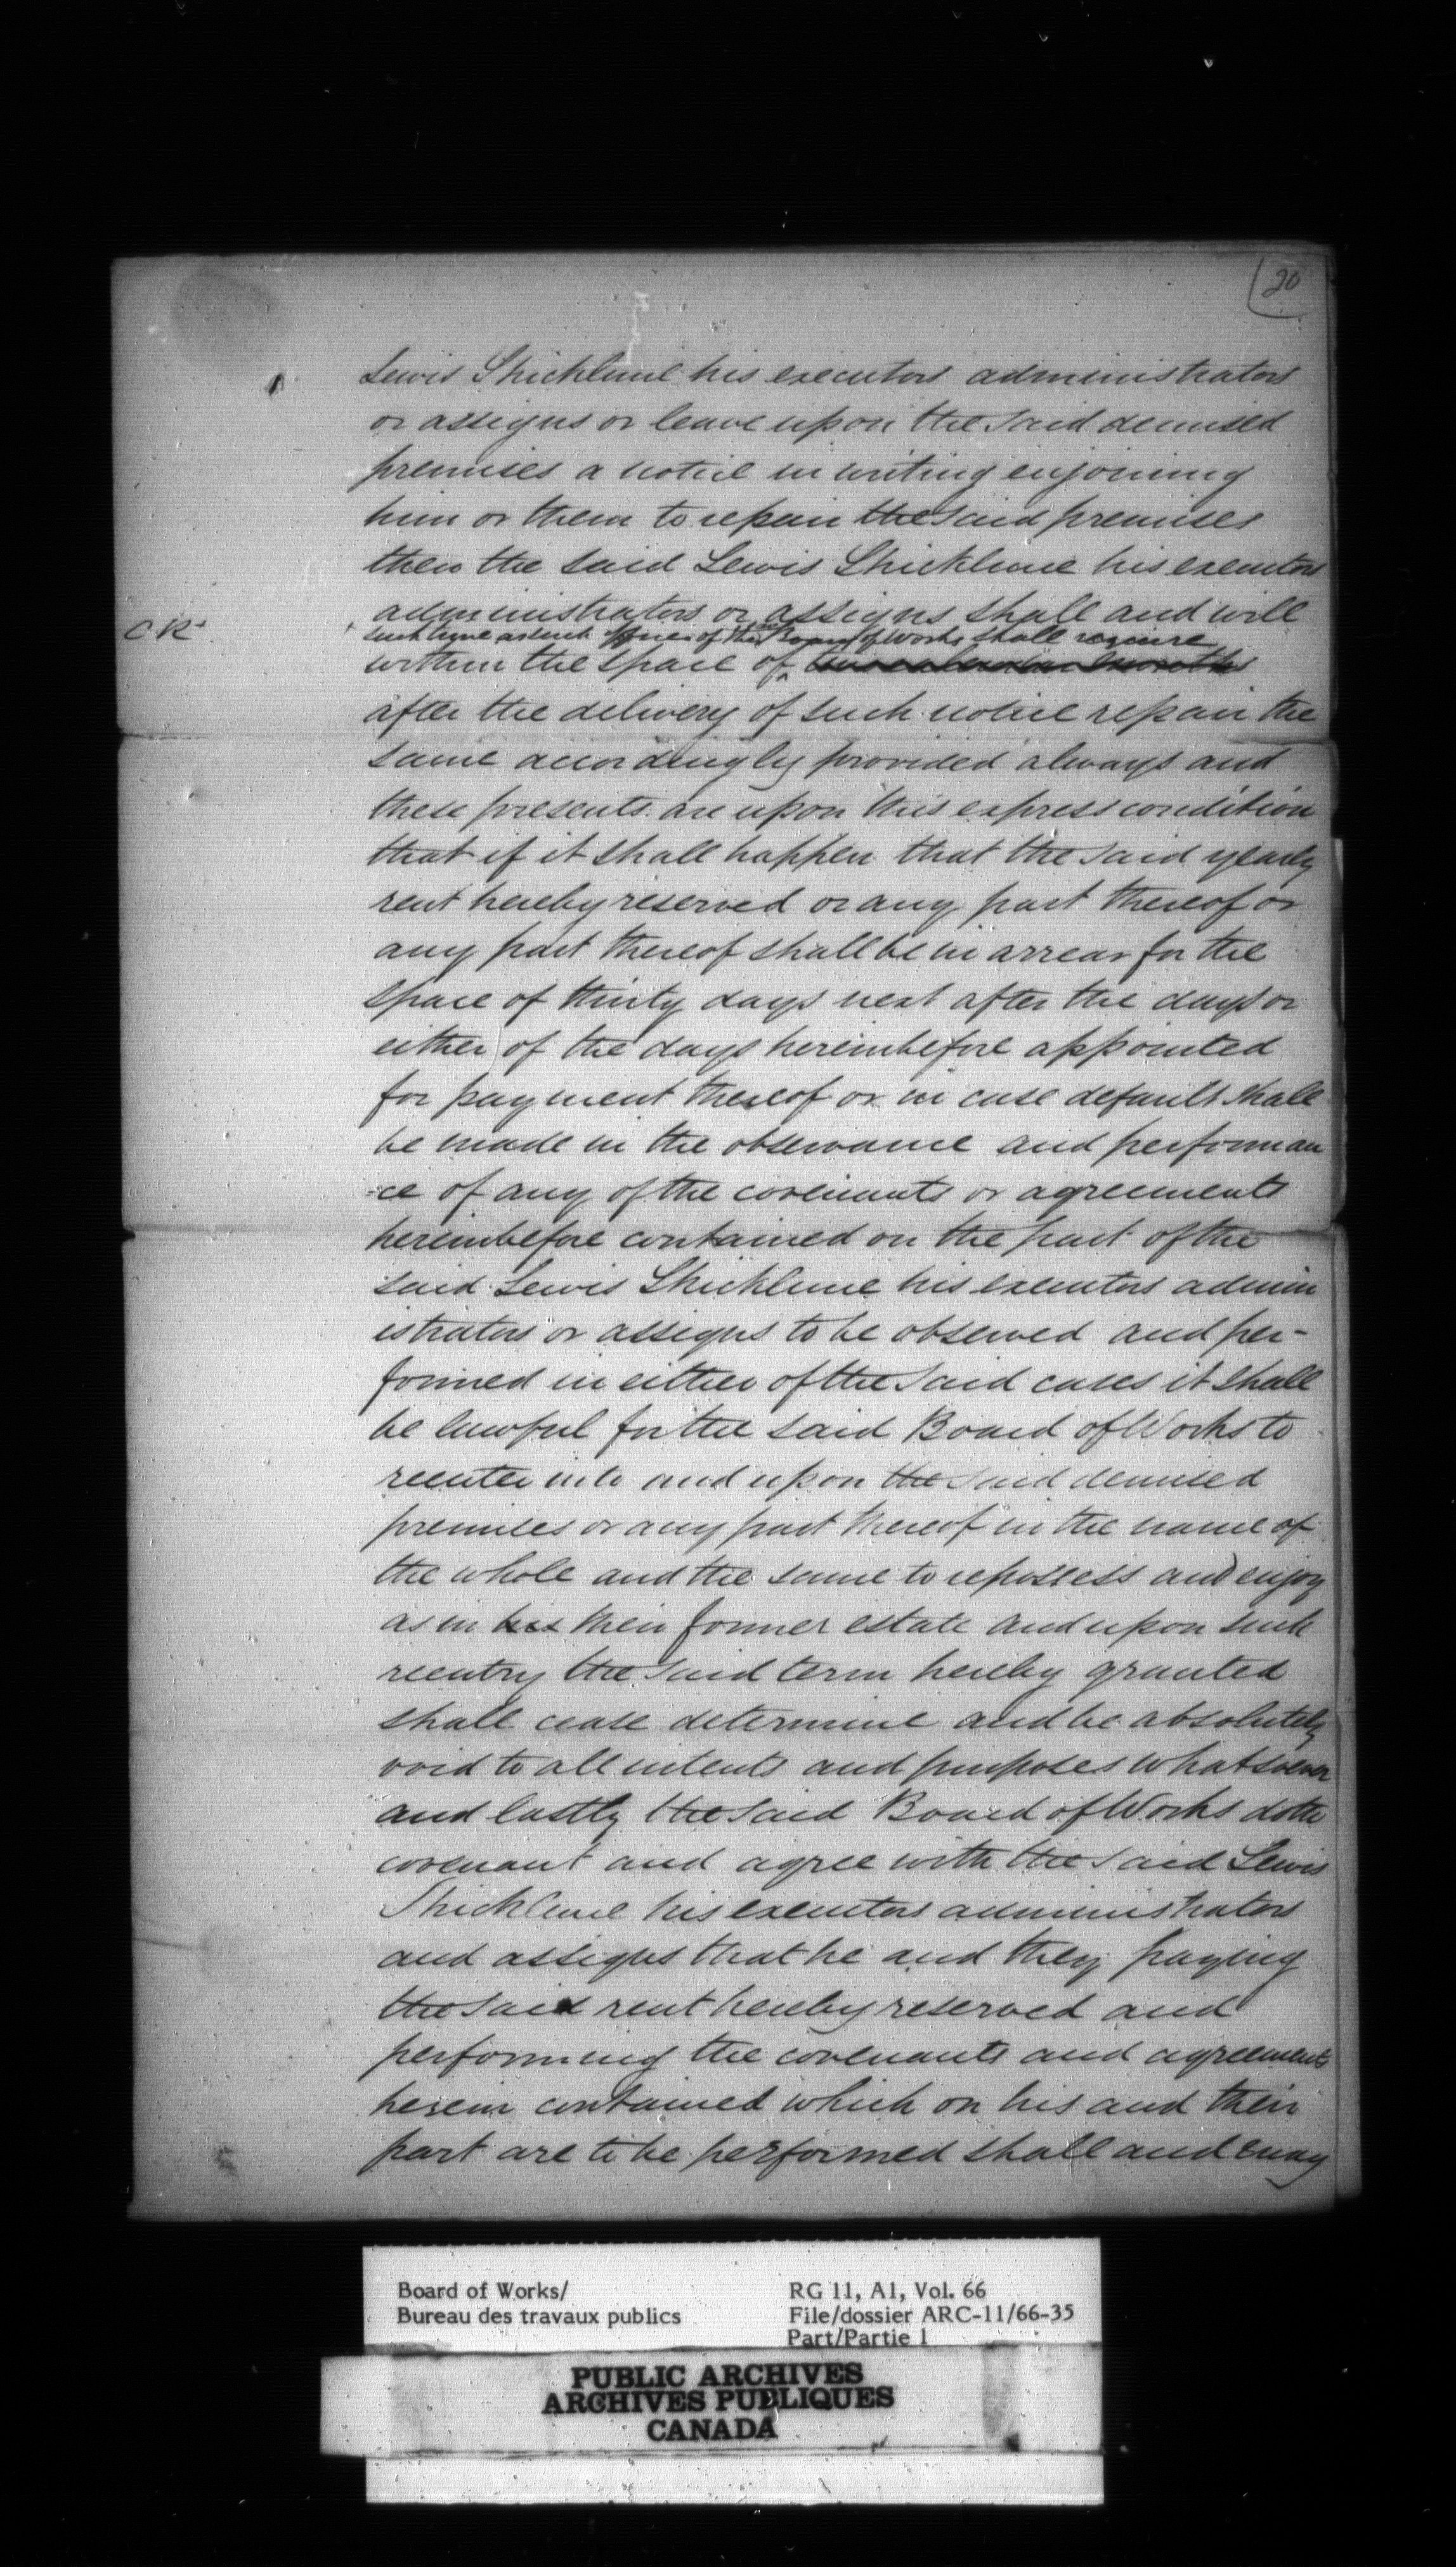 20
Lewis Shickluna his executors administrators
or assigns or leave upon the said demised
premises a notice in writing enjoining
him or them to repair the said premises
then the said Lewis Shickluna his executors
administrators or assigns shall and will
CK
such time as such Officer of the Board of Works shall require
within the space of
after the delivery of such notice repair the
same accordingly provided always and
these presents are upon this express condition
that if it shall happen that the said yearly
rent hereby reserved or any part thereof or
any part thereof shall be in arrear for the
space of thirty days next after the days or
either of the days hereinbefore appointed
for payment thereof or in case default shall
be made in the observance and performan
-ce of any of the covenants or agreements
hereinbefore contained on the part of the
said Lewis Shickluna his executors admin
istrators or assigns to be observed and per-
formed in either of the said cases it shall
be lawful for the said Board of Works to
reenter into and upon the said demised
premises or any part thereof in the name of
the whole and the same to repossess and enjoy
as in his their former estate and upon such
reentry the said term hereby granted
shall cease determine and be absolutely
void to all intents and purposes whatsoever
and lastly the said Board of Works doth
covenant and agree with the said Lewis
Shickluna his executors administrators
and assigns that he and they paying
the said rent hereby reserved and
performing the covenants and agreements
herein contained which on his and their
part are to be performed shall and may
Board of Works/
Bureau des travaux publics
RG 11, A1, Vol. 66
File/dossier ARC-11/66-35
Part/Partie 1
PUBLIC ARCHIVES
ARCHIVES PUBLIQUES
CANADA